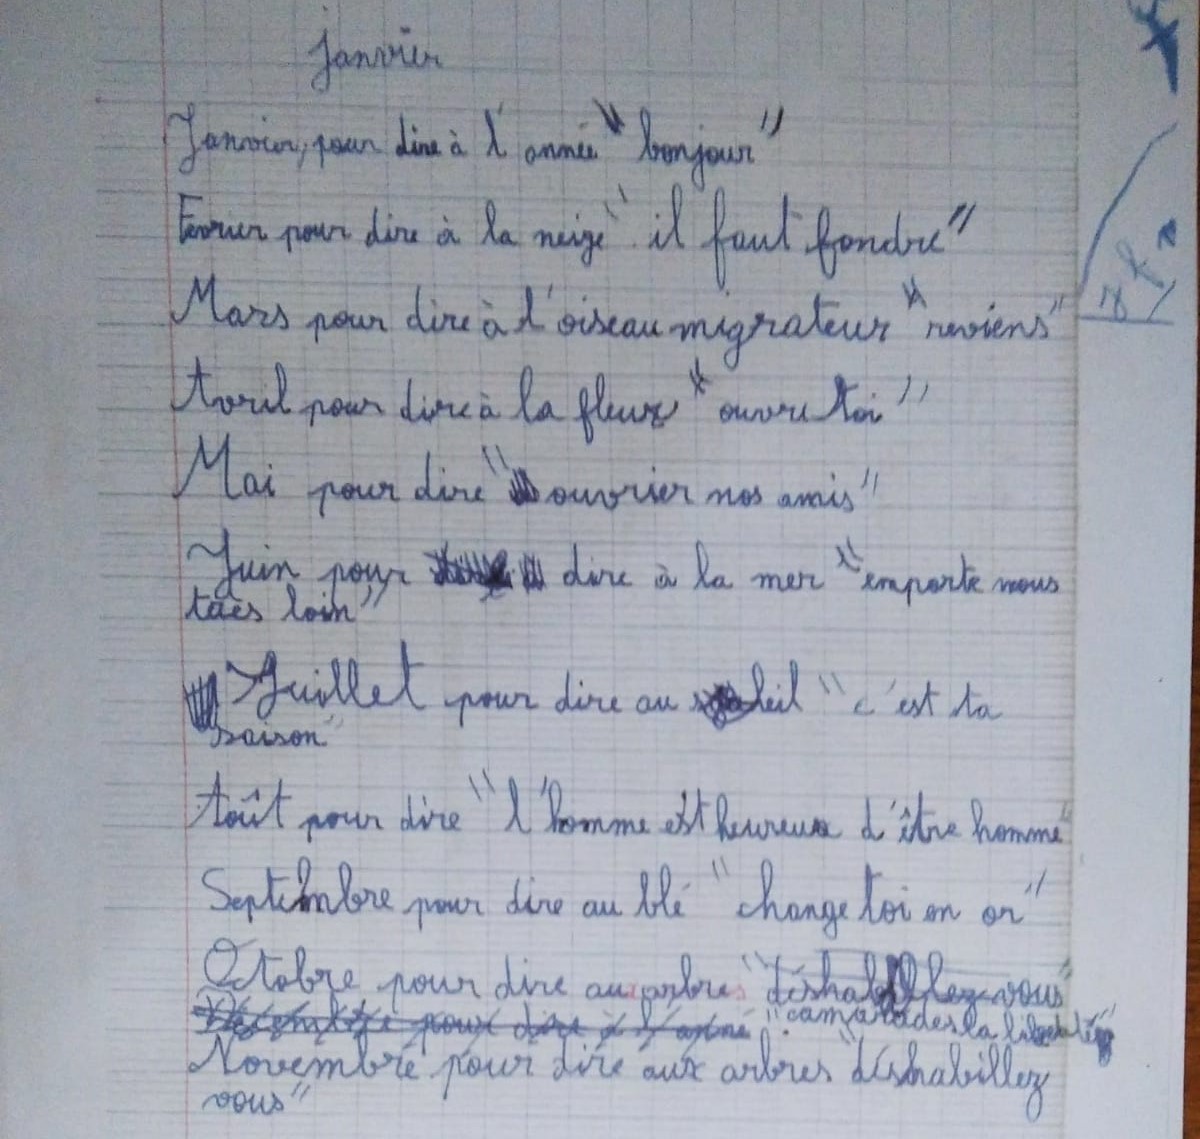 Janvier
Janvier, pour dire à l'année "bonjour"
Fevrier pour dire à la neige "il faut fondre"
Mars pour dire à l'oiseau migrateur "reviens"
Avril pour dire à la fleur "ouvre toi"
Mai pour dire "ouvrier nos amis"
Juin pour dire à la mer "emporte nous
très loin"
Juillet pour dire au soleil "c'est ta
saison"
Août pour dire "l'homme est heureux d'être homme"
Septembre pour dire au blé "change toi en or"
Octobre pour dire aux arbres "déshabillez-vous"
"camarades la liberté"
Novembre pour dire aux arbres "déshabillez
vous"